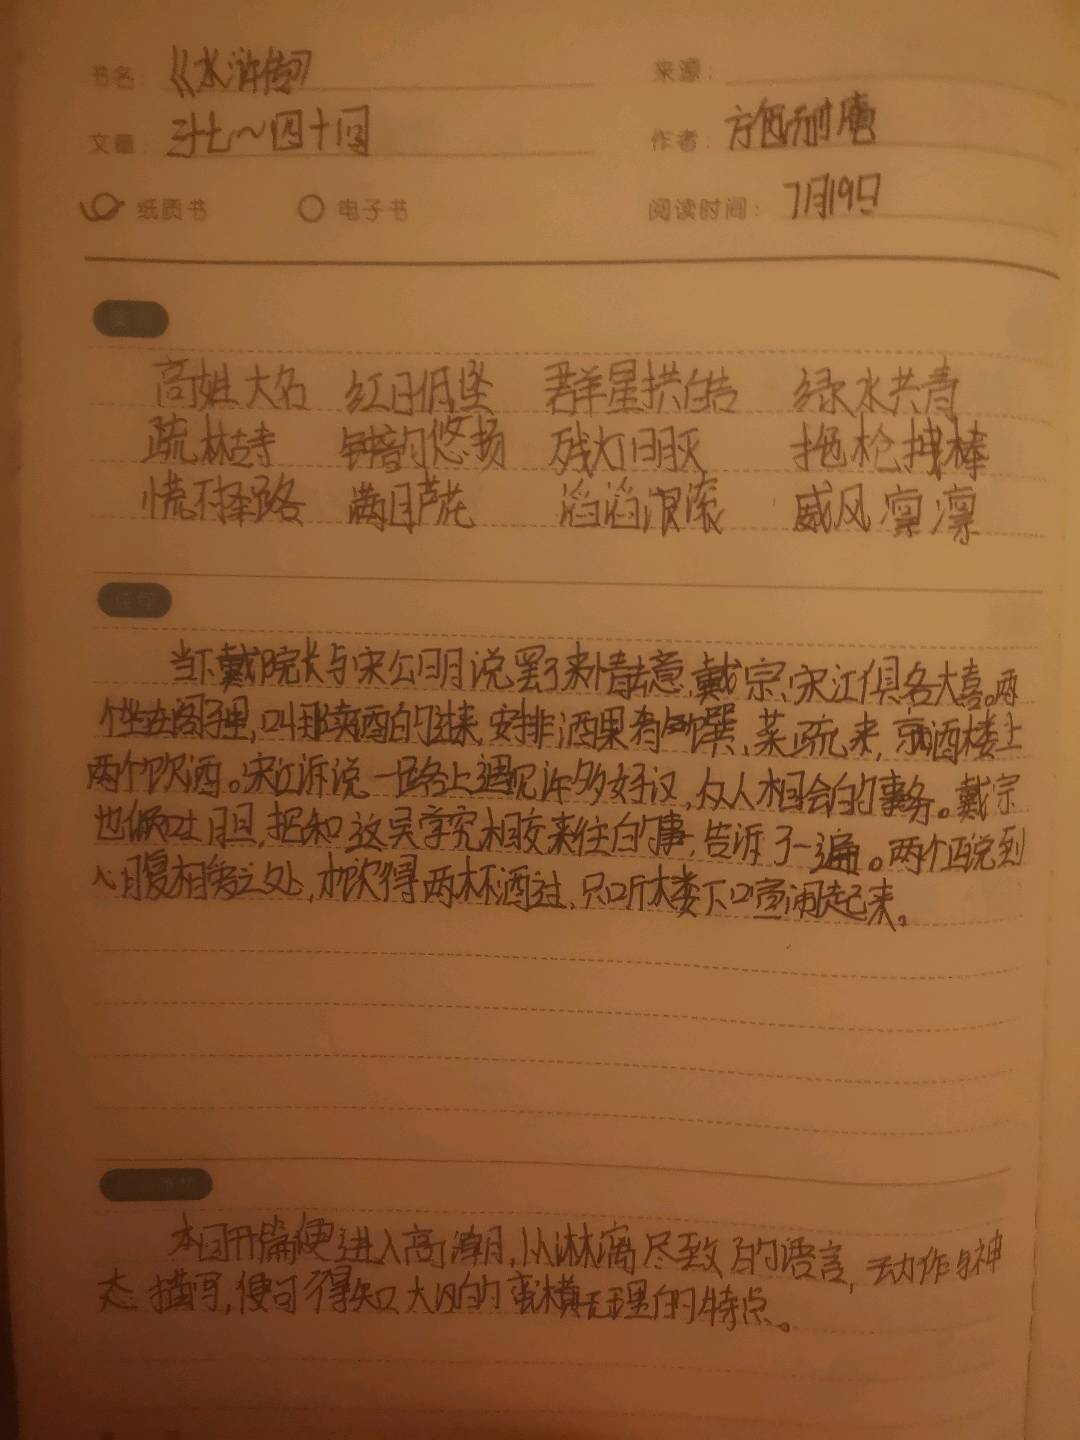 书名：《水浒传》 来源：
文章：三十七～四十回 作者：施耐庵
纸质书 电子书 阅读时间：7月19日
高姓大名 红日低坠 群星拱皓 绿水共青
疏林古寺 钟韵悠扬 残灯明灭 拖枪拽棒
慌不择路 满目芦花 滔滔浪滚 威风凛凛
佳句
当下戴院长与宋公明说罢了来情去意,戴宗、宋江俱各大喜。两
个坐在阁子里,叫那卖酒的过来,安排酒果肴馔、菜疏来,就酒楼上
两个饮酒。宋江诉说一路上遇见许多好汉,众人相会的事务。戴宗
也倾吐肝胆,把和这吴学究相交来往的事,告诉了一遍。两个正说到
心腹相爱之处,才饮得两杯酒过,只听楼下喧闹起来。
本回开篇便进入高潮,从淋漓尽致的语言,动作与神
态描写,便可得知大汉的蛮横无理的特点。